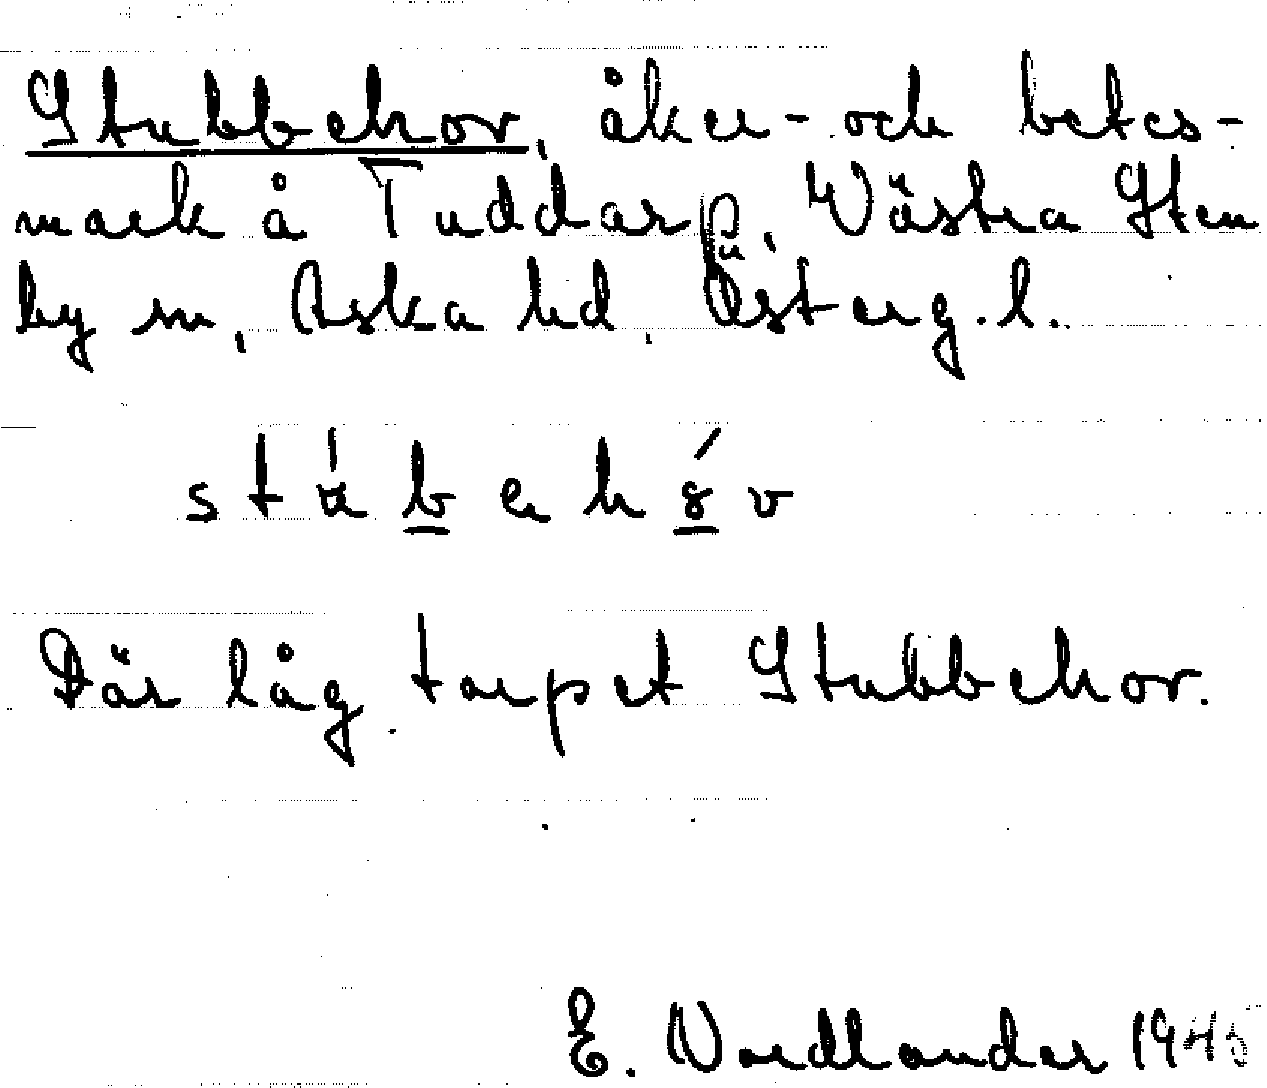 Stubbehov, åker- och betes-
mark å Tuddarp, Västra Sten
by sn, Aska hd, Österg. l.
Där låg torpet Stubbehov.
E. Nordlander 1945